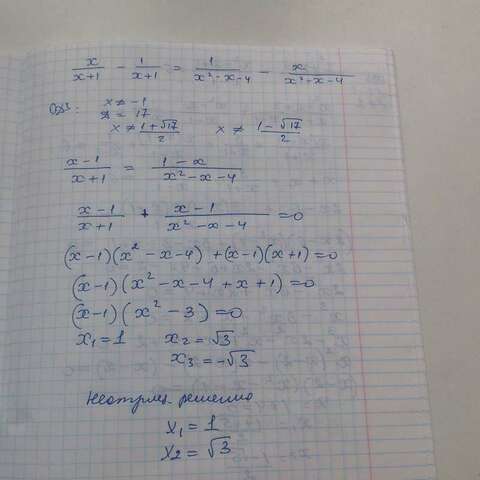 x/(x+1) - 1/(x+1) = 1/(x²-x-4) - x/(x²-x-4)
ОДЗ: x ≠ -1
D = 17
x ≠ (1+√17)/2 x ≠ (1-√17)/2
(x-1)/(x+1) = (1-x)/(x²-x-4)
(x-1)/(x+1) + (x-1)/(x²-x-4) = 0
(x-1)(x²-x-4) + (x-1)(x+1) = 0
(x-1)(x²-x-4+x+1) = 0
(x-1)(x²-3) = 0
x₁ = 1 x₂ = √3
x₃ = -√3
Неотриц. решения
x₁ = 1
x₂ = √3